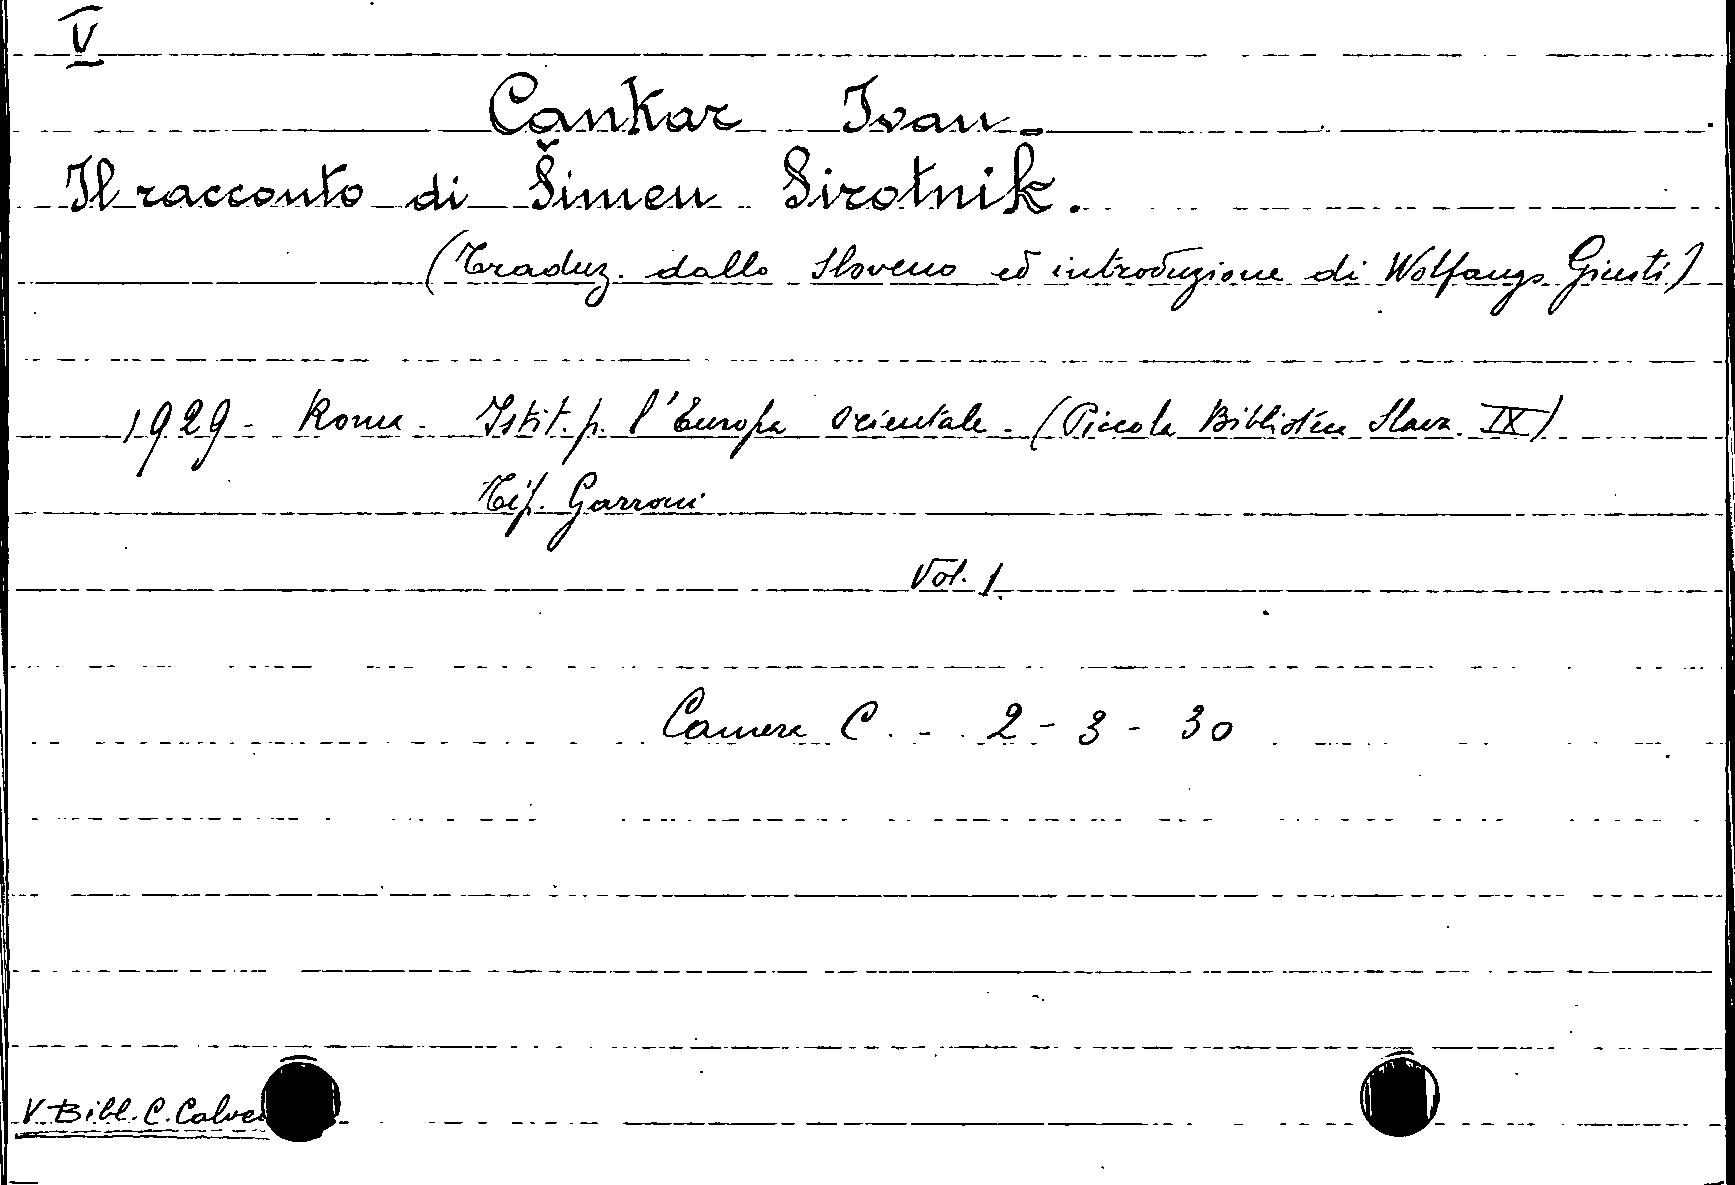 V
Cankar Ivan -
Il racconto di Šimen Sirotnik.
(Traduz. dallo Sloveno ed introduzione di Wolfango Giusti)
1929 - Roma - Istit. p. l'Europa Orientale - (Piccola Biblioteca Slava IX)
Tip. Garroni
Vol. 1
Camera C. - 2 - 3 - 30
V. Bibl. C. Calve